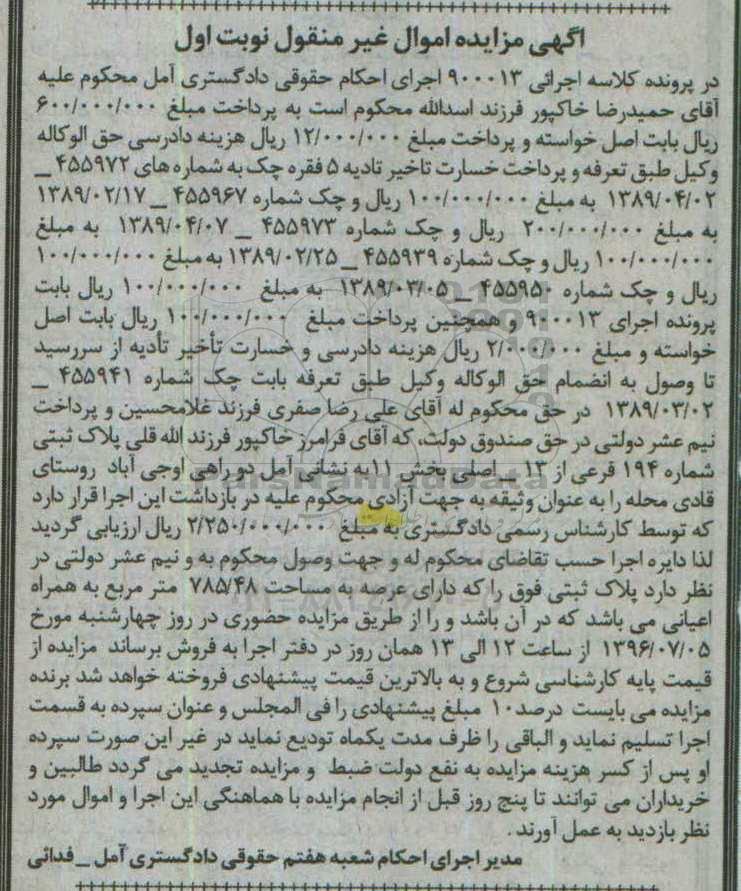 آگهی مزایده اموال غیر منقول نوبت اول
در پرونده کلاسه اجرائی ۹۰۰۰۱۳ اجرای احکام حقوقی دادگستری آمل محکوم علیه
آقای حمیدرضا خاکپور فرزند اسدالله محکوم است به پرداخت مبلغ ۶۰۰/۰۰۰/۰۰۰
ریال بابت اصل خواسته و پرداخت مبلغ ۱۲/۰۰۰/۰۰۰ ریال هزینه دادرسی حق الوکاله
وکیل طبق تعرفه و پرداخت خسارت تاخیر تادیه ۵ فقره چک به شماره های ۴۵۵۹۷۲ _
۱۳۸۹/۰۴/۰۲ به مبلغ ۱۰۰/۰۰۰/۰۰۰ ریال و چک شماره ۴۵۵۹۶۷ _ ۱۳۸۹/۰۲/۱۷
به مبلغ ۲۰۰/۰۰۰/۰۰۰ ریال و چک شماره ۴۵۵۹۷۳ _ ۱۳۸۹/۰۴/۰۷ به مبلغ
۱۰۰/۰۰۰/۰۰۰ ریال و چک شماره ۴۵۵۹۳۹ _ ۱۳۸۹/۰۲/۲۵ به مبلغ ۱۰۰/۰۰۰/۰۰۰
ریال و چک شماره ۴۵۵۹۵۰ _ ۱۳۸۹/۰۳/۰۵ به مبلغ ۱۰۰/۰۰۰/۰۰۰ ریال بابت
پرونده اجرای ۹۰۰۰۱۳ و همچنین پرداخت مبلغ ۱۰۰/۰۰۰/۰۰۰ ریال بابت اصل
خواسته و مبلغ ۲/۰۰۰/۰۰۰ ریال هزینه دادرسی و خسارت تأخیر تأدیه از سررسید
تا وصول به انضمام حق الوکاله وکیل طبق تعرفه بابت چک شماره ۴۵۵۹۴۱ _
۱۳۸۹/۰۳/۰۲ در حق محکوم له آقای علی رضا صفری فرزند غلامحسین و پرداخت
نیم عشر دولتی در حق صندوق دولت، که آقای فرامرز خاکپور فرزند الله قلی پلاک ثبتی
شماره ۱۹۴ فرعی از ۱۳ _ اصلی بخش ۱۱ به نشانی آمل دو راهی اوجی آباد روستای
قادی محله را به عنوان وثیقه به جهت آزادی محکوم علیه در بازداشت این اجرا قرار دارد
که توسط کارشناس رسمی دادگستری به مبلغ ۲/۲۵۰/۰۰۰/۰۰۰ ریال ارزیابی گردید
لذا دایره اجرا حسب تقاضای محکوم له و جهت وصول محکوم به و نیم عشر دولتی در
نظر دارد پلاک ثبتی فوق را که دارای عرصه به مساحت ۷۸۵/۴۸ متر مربع به همراه
اعیانی می باشد که در آن باشد و را از طریق مزایده حضوری در روز چهارشنبه مورخ
۱۳۹۶/۰۷/۰۵ از ساعت ۱۲ الی ۱۳ همان روز در دفتر اجرا به فروش برساند مزایده از
قیمت پایه کارشناسی شروع و به بالاترین قیمت پیشنهادی فروخته خواهد شد برنده
مزایده می بایست درصد۱۰ مبلغ پیشنهادی را فی المجلس و عنوان سپرده به قسمت
اجرا تسلیم نماید و الباقی را ظرف مدت یکماه تودیع نماید در غیر این صورت سپرده
او پس از کسر هزینه مزایده به نفع دولت ضبط و مزایده تجدید می گردد طالبین و
خریداران می توانند تا پنج روز قبل از انجام مزایده با هماهنگی این اجرا و اموال مورد
نظر بازدید به عمل آورند .
مدیر اجرای احکام شعبه هفتم حقوقی دادگستری آمل _ فدائی
ParsNamadData